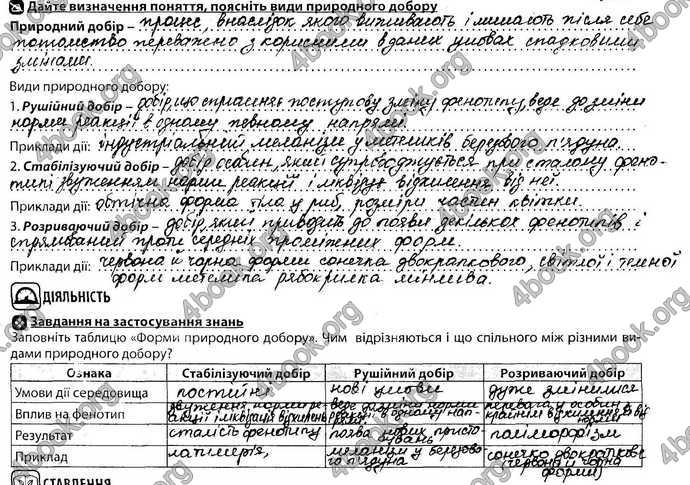 Дайте визначення поняття, поясніть види природного добору
Природний добір – процес, внаслідок якого виживають і лишають після себе
потомство переважно з корисними в даних умовах спадковими
змінами.
Види природного добору:
1. Рушійний добір – добір, що сприяння поступову зміну фенотипу, веде до зміни
норми реакції в одному певному напрямі.
Приклади дії: індустріальний меланізм у метеликів березового п'ядуна.
2. Стабілізуючий добір – добір особин, який супроводжується при сталому фено-
типі звуженням норми реакції і ліквідує відхилення від неї.
Приклади дії: обтічна форма тіла у риб, розміри частин квітки.
3. Розриваючий добір – добір, який приводить до появи декількох фенотипів і
спрямований проти середніх проміжних форм.
Приклади дії: червона й чорна форми сонечка двокрапкового, світлої і темної
форм метелика рябокрилка мінлива.
ДІЯЛЬНІСТЬ
Завдання на застосування знань
Заповніть таблицю «Форми природного добору». Чим відрізняються і що спільного між різними ви-
дами природного добору?
Ознака Стабілізуючий добір Рушійний добір Розриваючий добір
Умови дії середовища постійні нові умови дуже змінилися
Вплив на фенотип звуження норми ре-акції і ліквідація відхилень веде до зміни норми реакції в одному нап- перевага у особин з крайніми відхиленнями від норми
Результат сталість фенотипу поява нових присто-сувань поліморфізм
Приклад латимерія, меланізм у березово-го п'ядуна сонечко двокрапкове (червона й чорна форми)
СТАВЛЕННЯ
4book.org